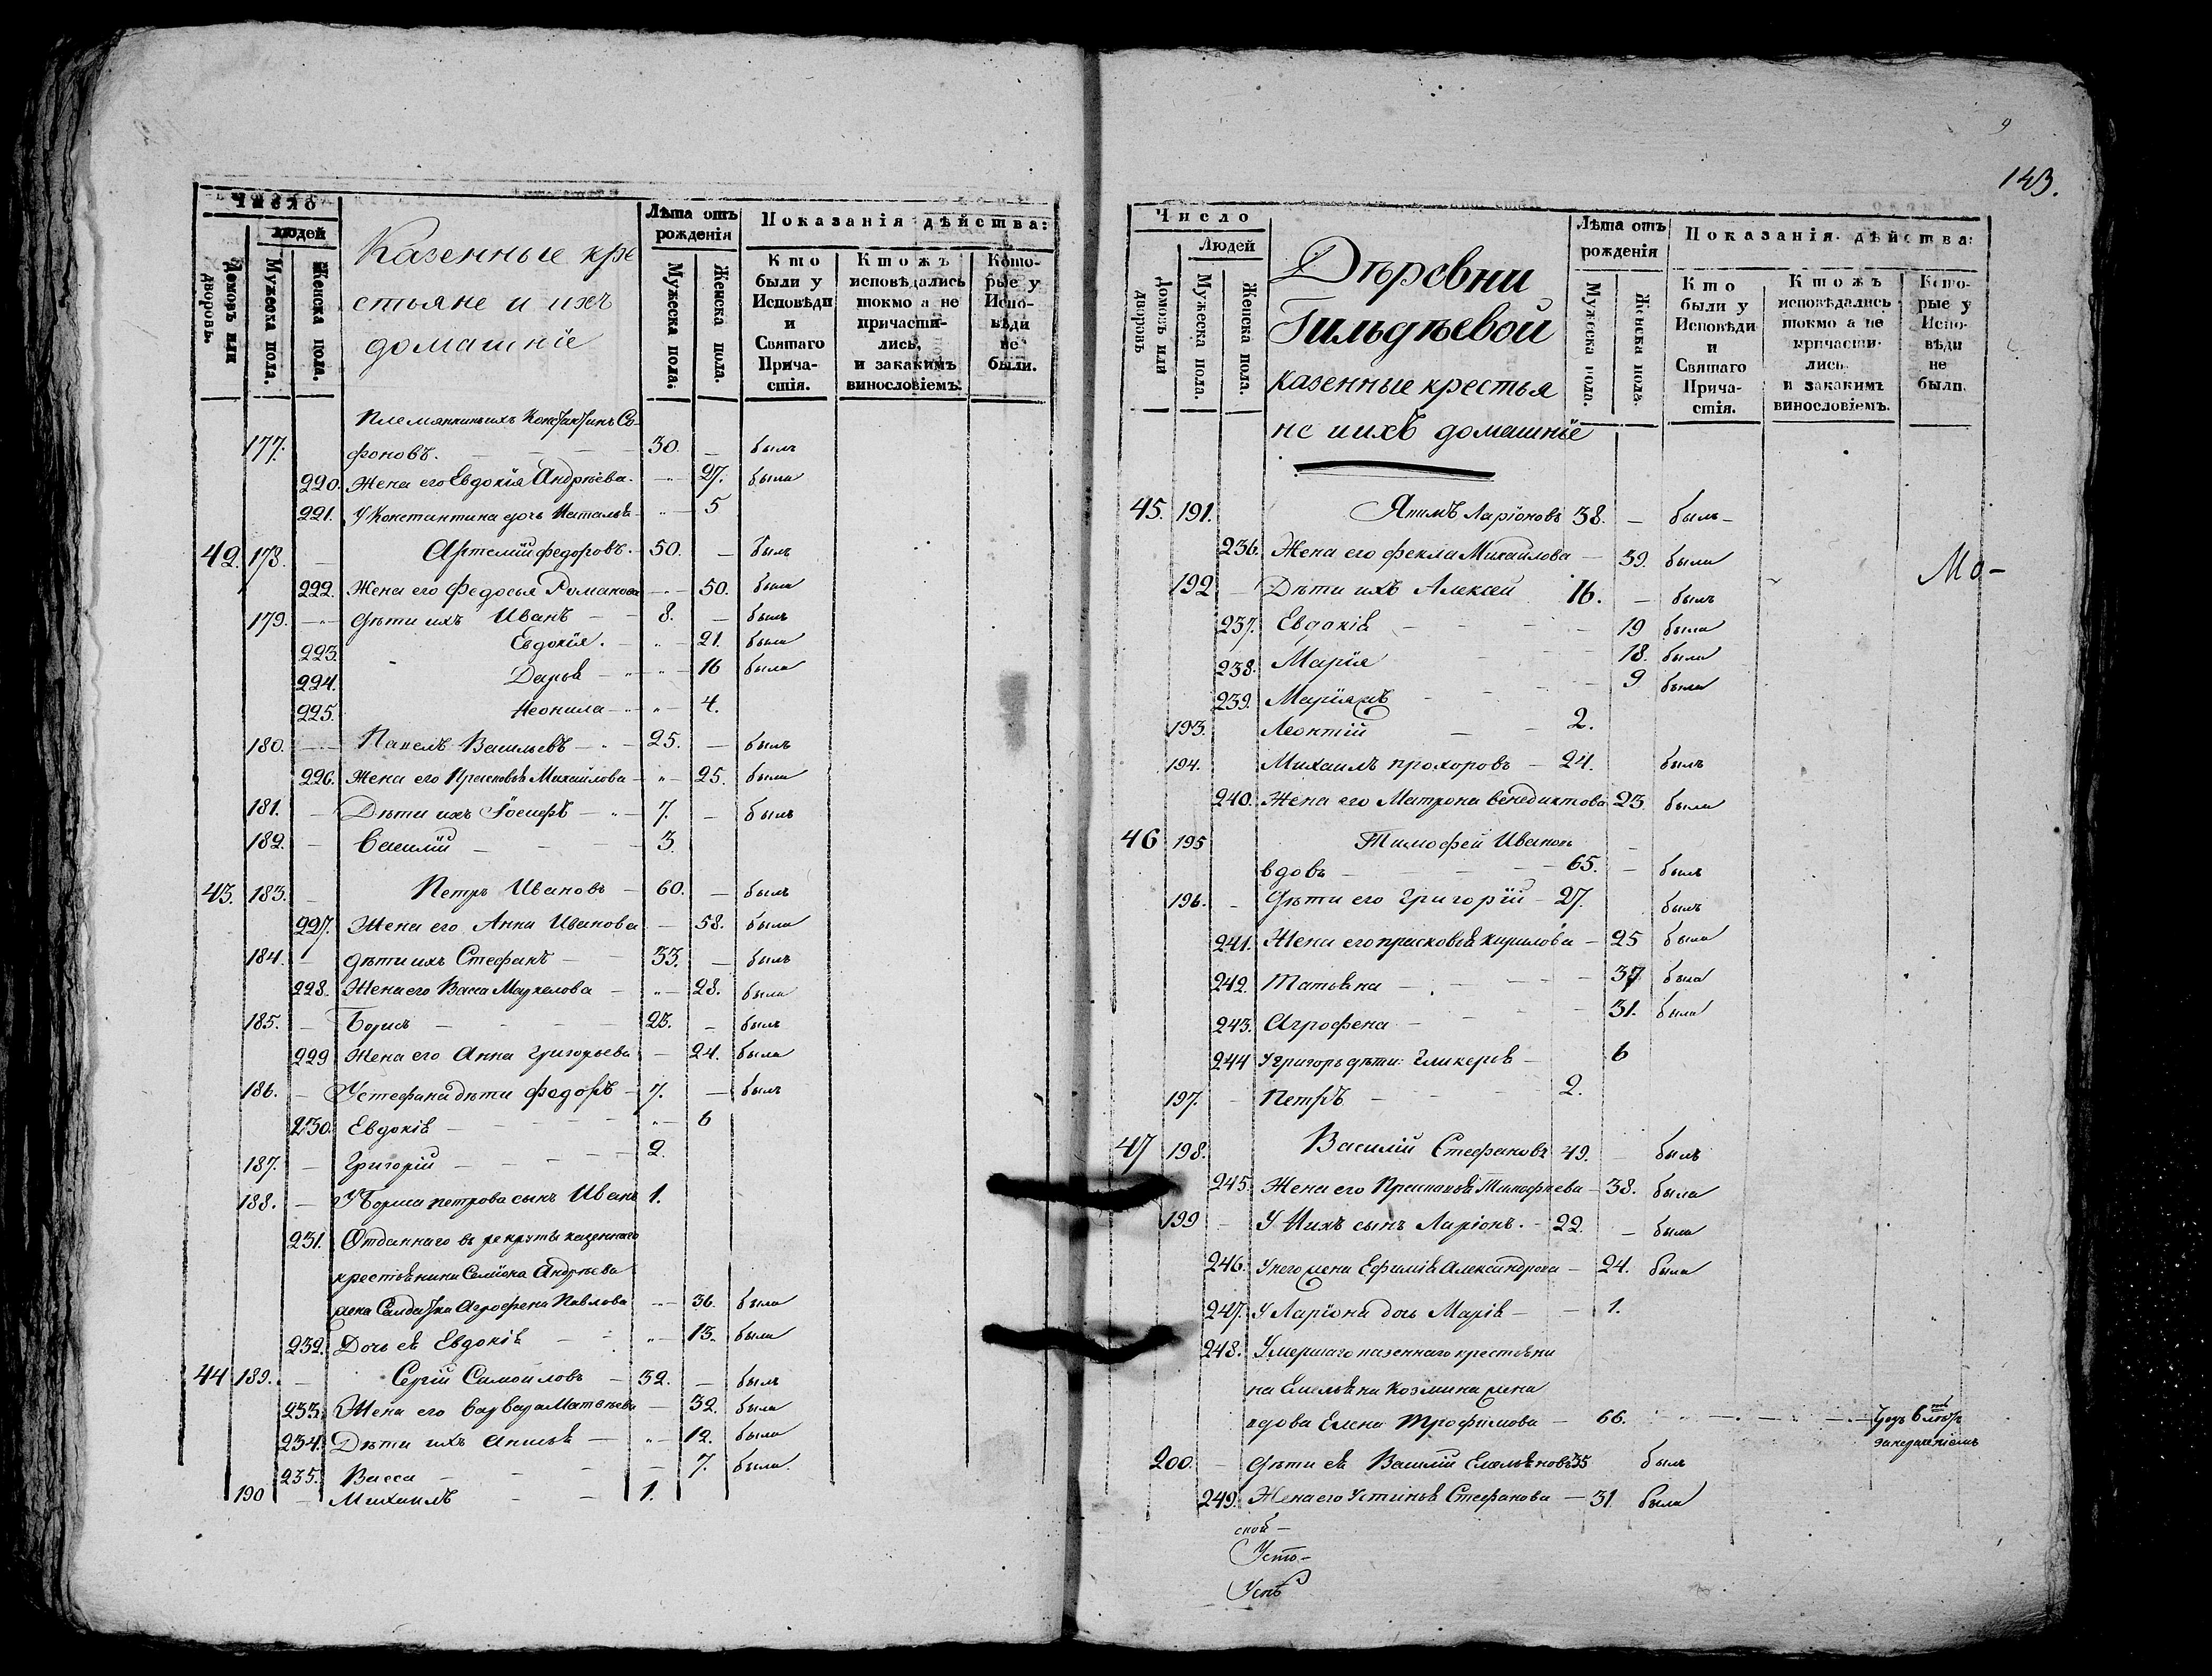 Число
людей
Домовъ или дворовъ.
Мужеска пола.
Женска пола.
Казенные кре
стьяне и ихъ
домашніе
Лѣта отъ рожденія
Мужеска пола.
Женска пола.
Показанія дѣйства:
Кто были у Исповѣди и Святаго Причастія.
Ктожъ исповѣдались токмо а не причастились, и закакимъ винословіемъ.
Которые у Исповѣди не были.
Племянникъ ихъ Константинъ Са-
177. фоновъ. 30. — былъ
220. Жена его Евдокія Андрѣева. 27. была
221. У Константина дочь Наталья 5
42. 178. Артемій федоровъ. 50. — былъ
222. Жена его Федосья Романова 50. была
179. дѣти ихъ Иванъ 8. — былъ
223. Евдокія. 21. была
224. Дарья 16 была
225. Неонила 4.
180. Павелъ Васильевъ 25. — былъ
226. Жена его Прасковья Михайлова 25. была
181. Дѣти ихъ Іосифъ 7. — былъ
182. Василій 3.
43. 183. Петръ Ивановъ 60. — былъ
227. Жена его Анна Иванова 58. была
184. дѣти ихъ Стефанъ 33. — былъ
228. Жена его Васса Маркелова 28. была
185. Борисъ 23. — былъ
229 Жена его Анна Григорьева 24. была
186. У стефана дѣти федоръ 7. — былъ
230. Евдокія 6
187. Григорій 2.
188. У Бориса петрова сынъ Иванъ 1.
231. Отданнаго въ рекруты казеннаго
крестьянина Семіона Андрѣева
жена Салдатка Агрофена Павлова 36. была
232. Дочь ея Евдокія 13. была
44 189. Сергій Самоиловъ 32. — былъ
233. Жена его варвара Матвѣева 32. была
234. Дѣти ихъ Анисья 12. была
235. Васса 7. была.
190 Михаилъ 1.
9
143.
Число
Людей
Домовъ или дворовъ
Мужеска пола.
Женска пола.
Дѣревни
Гильдѣевой
казенные крестья
не и ихъ домашніе
Лѣта отъ рожденія
Мужеска пола.
Женска пола.
Показанія дѣйства:
Кто были у Исповѣди и Святаго Причастія.
Ктожъ исповѣдались токмо а не причастились. и закакимъ винословіемъ.
Которые у Исповѣди не были.
45. 191. Якимъ Ларіоновъ 38. — былъ —
236. Жена его фекла Михайлова 39. была
Мо-
192 Дѣти ихъ Алексей 16. — былъ
237. Евдокія 19 была
238. Марія 18. была
239. 9 была
193. Леонтій 2.
194. Михаилъ прохоровъ 24. былъ
240. Жена его Матрона венедиктова 23. была
46 195 Тимофей Иванов
вдовъ 65. — былъ
196. дѣти его Григорій 27. былъ
241. Жена его прасковья кирилова 25 была
242. Татьяна 37 была
243. Агрофена 31. была
244 У григорья дѣти: Гликерія 6
197. Петръ 2.
47 198. Василій Стефановъ 49. былъ
245. Жена его Прасковья Тимофеева 38. была
199 У Нихъ сынъ Ларіонъ. 22. — была
246. У него жена Ефимія Александрова 24. была
247. У Ларіона дочь Марія 1.
248. Умершаго казеннаго крестьяни
на Емельяна Козмина жена
вдова Елена Трофимова 66.
200. дѣти ея Василій Емельяновъ 35 былъ
249. Жена его Устинья Стефанова 31. была
ской —
Усто-
Усть